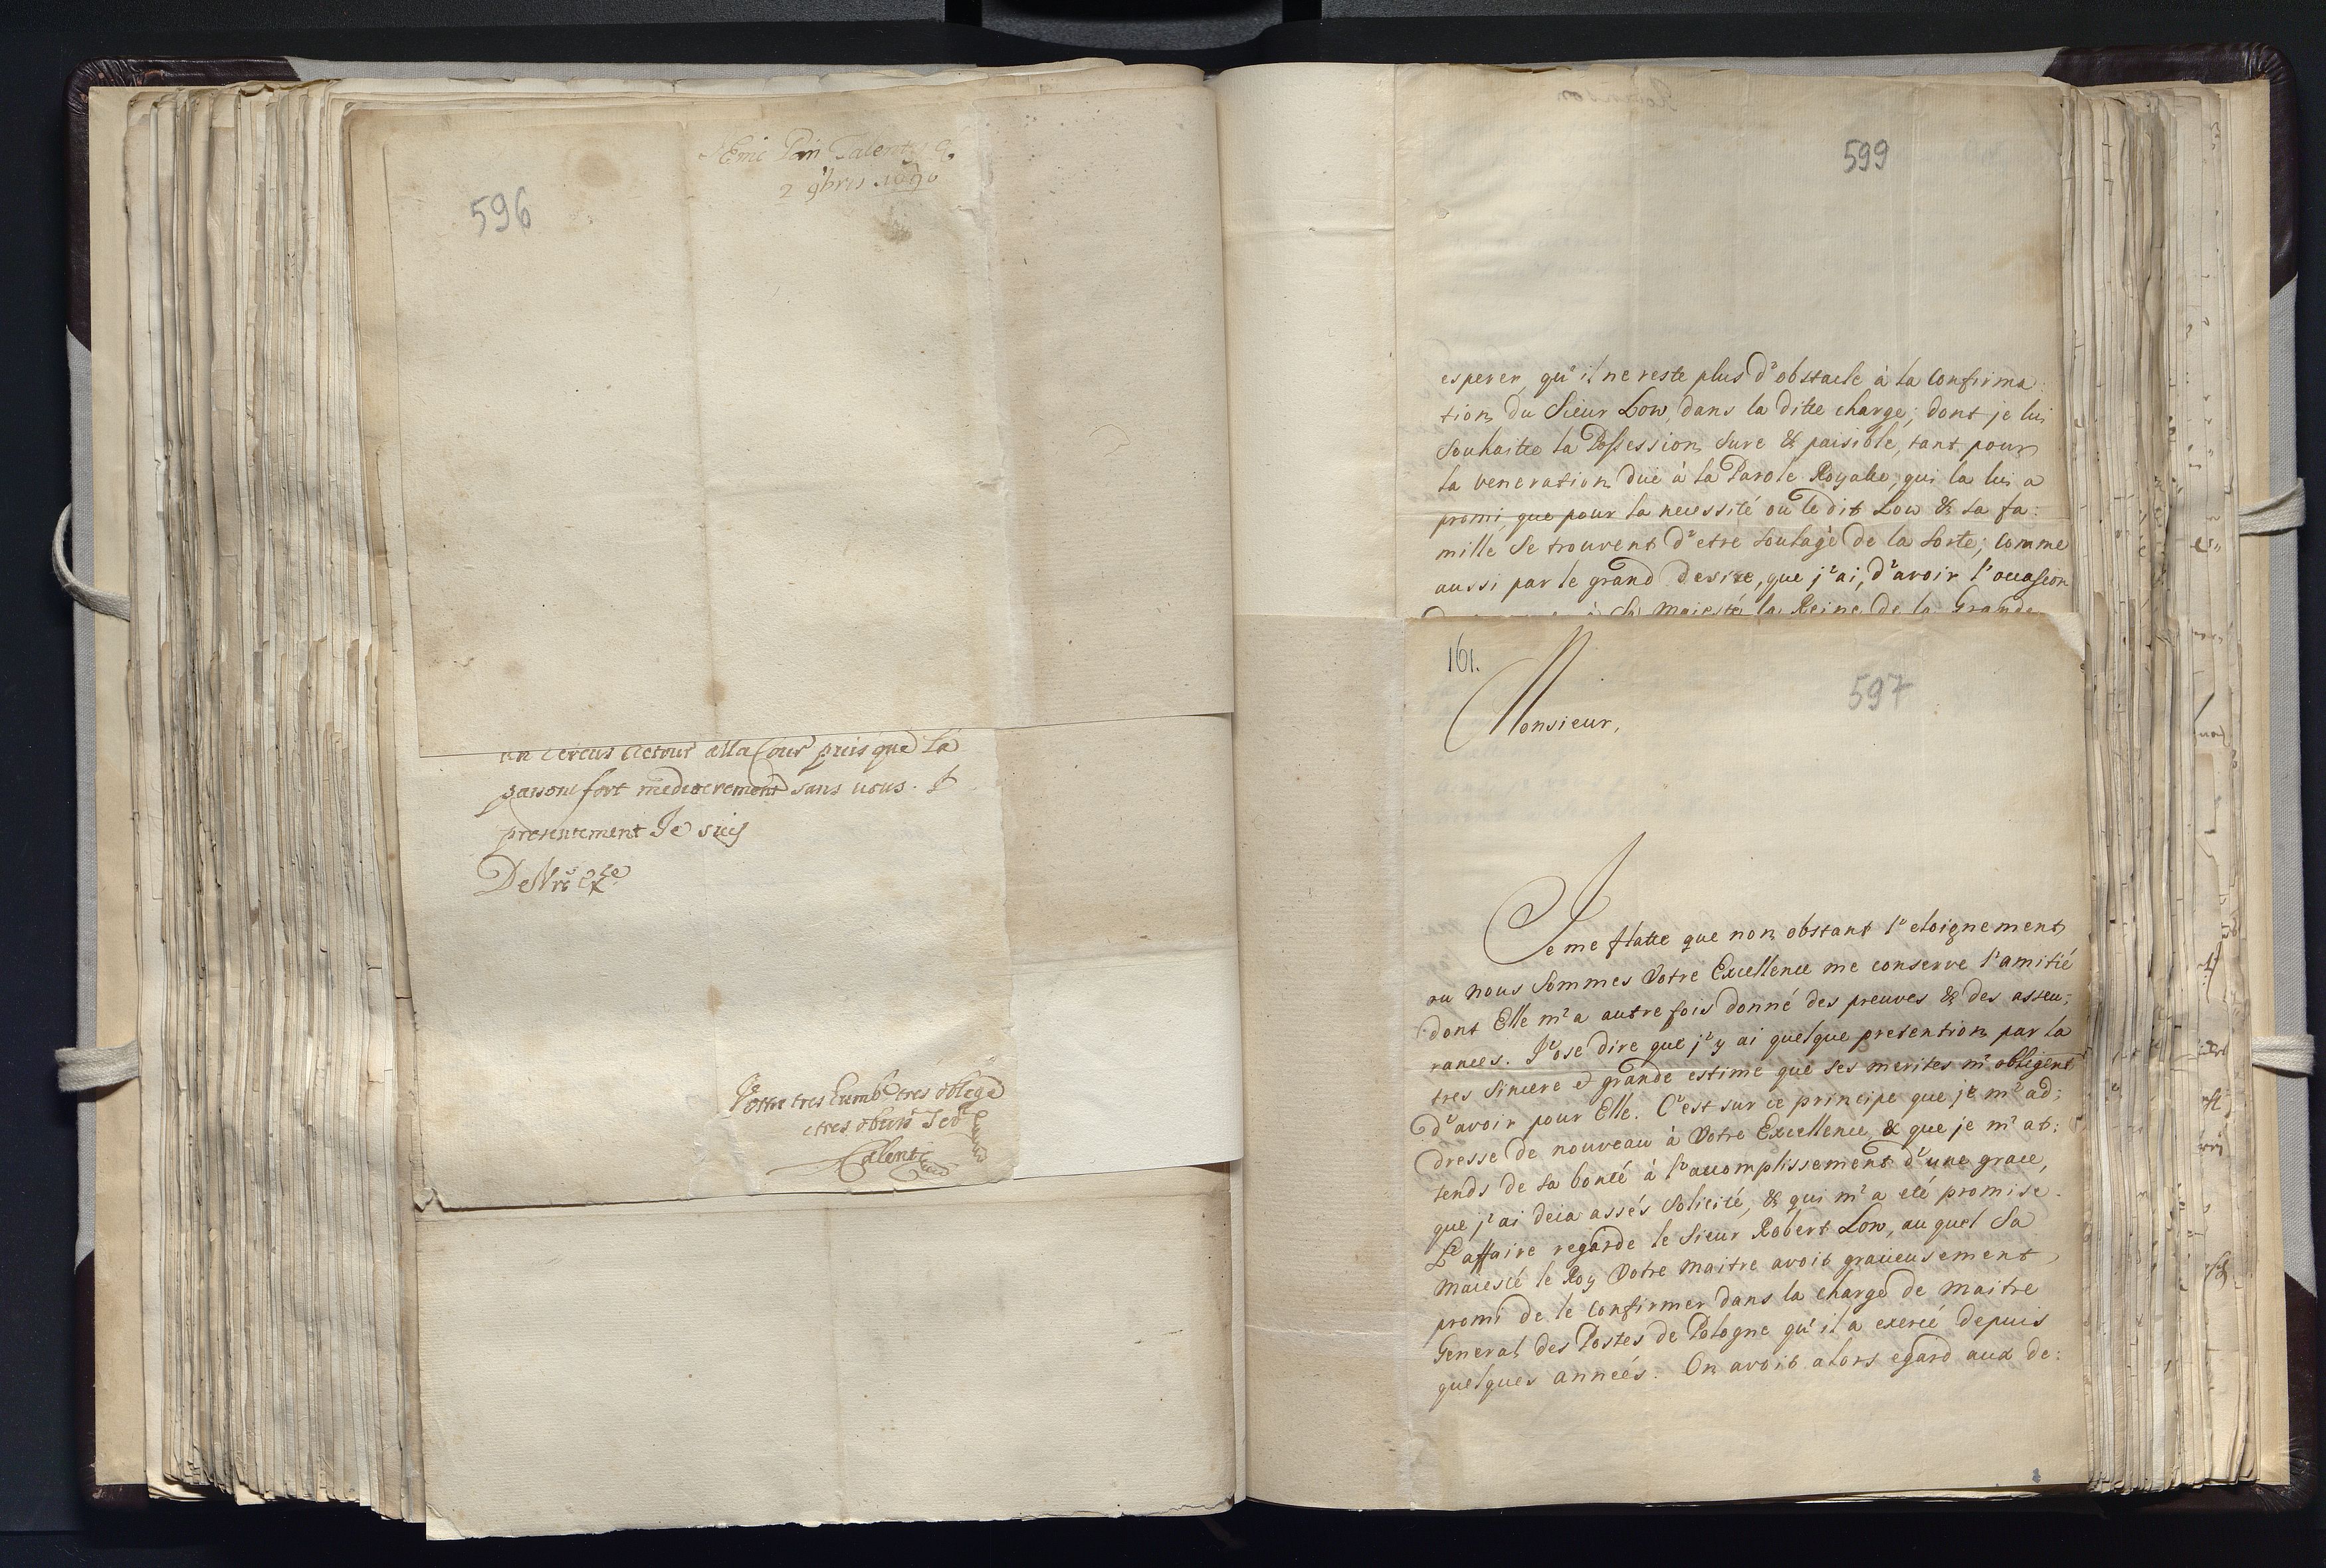 596
2 9bris 1696
retour alla Cour puis que la
passons fort mediocrement sans vous. Et
presentement Je suis
De Vre Exce
Vostre tres humble tres oblegé
e tres obeiss Ser
Talenti
599
esperer, qu'il ne reste plus d'obstacle à la Confirma:
tion du Sieur Low, dans la ditte charge; dont je lui
souhaitte la Possession sure & paisible, tant pour
la veneration duë à la Parole Royalle, qui la lui a
promi, que pour la necessité ou le dit Low & sa fa:
mille se trouvent d'etre soulagé de la sorte; comme
aussi par le grand desire, que j'ai, d'avoir l'occasion
à Sa Majesté la Reine de la Grande
161.
597
Monsieur,
Je me flatte que non obstant l'eloignement
ou nous sommes Votre Excellence me conserve l'amitié
dont Elle m'a autre fois donné des preuves & des asseu:
rances. J'ose dire que j'y ai quelque pretention par la
tres sincere & grande estime que ses merites m'obligent
d'avoir pour Elle. C'est sur ce principe que je m'ad:
dresse de nouveau à Votre Excellence, & que je m'at:
tends de sa bonté à l'accomplissement d'une grace,
que j'ai deia assés solicité, & qui m'a eté promise.
L'affaire regarde le Sieur Robert Low, au quel Sa
Maiesté le Roy Votre Maitre avoit gracieusement
promi de le confirmer dans la charge de Maitre
General des Postes de Pologne qu'il a exercé depuis
quelques anneés. On avoit alors egard aux de: